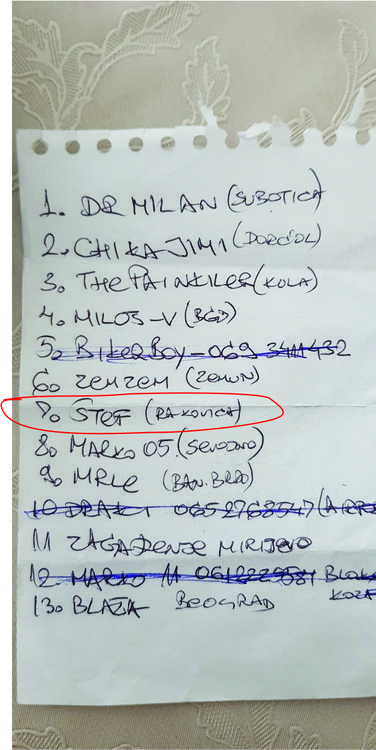 1. DR MILAN (SUBOTICA)
2. CHIKA JIMI (DORĆOL)
3. THE PAINKILER (KOLA)
4. MILOS-V (BGD)
5. BIKERBOY - 069 3411432
6. ZEMZEM (ZEMUN)
7. STEF (RAKOVICA)
8. MARKO 05.
9. MRLE (BAN. BRDO)
10 0652768547
11 ZAGAĐENJE MIRIJEVO
12. MARKO 11 BLOK
KOZA
13. BLAŽA BEOGRAD